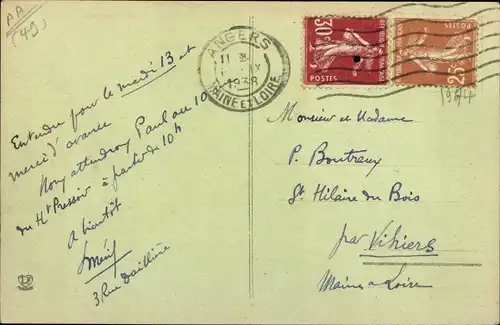 AA
(49)
ANGERS
1938
MAINE ET LOIRE
30c
POSTES
25c
POSTES
Entendu pour le mardi 13 et
merci d'avance
Nous attendrons Paul au 10
du Ht Pressoir à partir de 10h
A bientôt
3 Rue Daillière
Monsieur et Madame
P. Boutreux
St Hilaire du Bois
par Vihiers
Maine & Loire